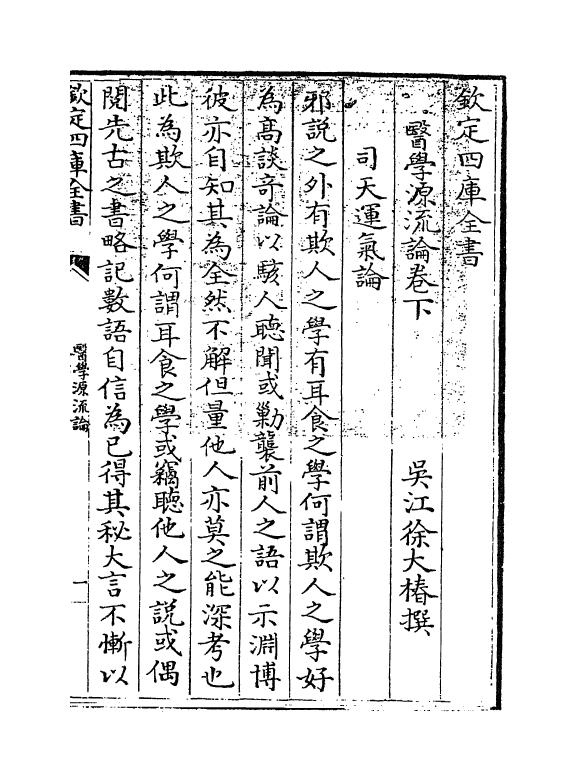 欽定四庫全書
醫學源流論卷下
吳江徐大椿撰
司天運氣論
邪說之外有欺人之學有耳食之學何謂欺人之學好
為高談奇論以駭人聽聞或勦襲前人之語以示淵博
彼亦自知其為全然不解但量他人亦莫之能深考也
此為欺人之學何謂耳食之學或竊聽他人之説或偶
閱先古之書略記數語自信為已得其秘大言不慚以
欽定四庫全書
醫學源流論
一